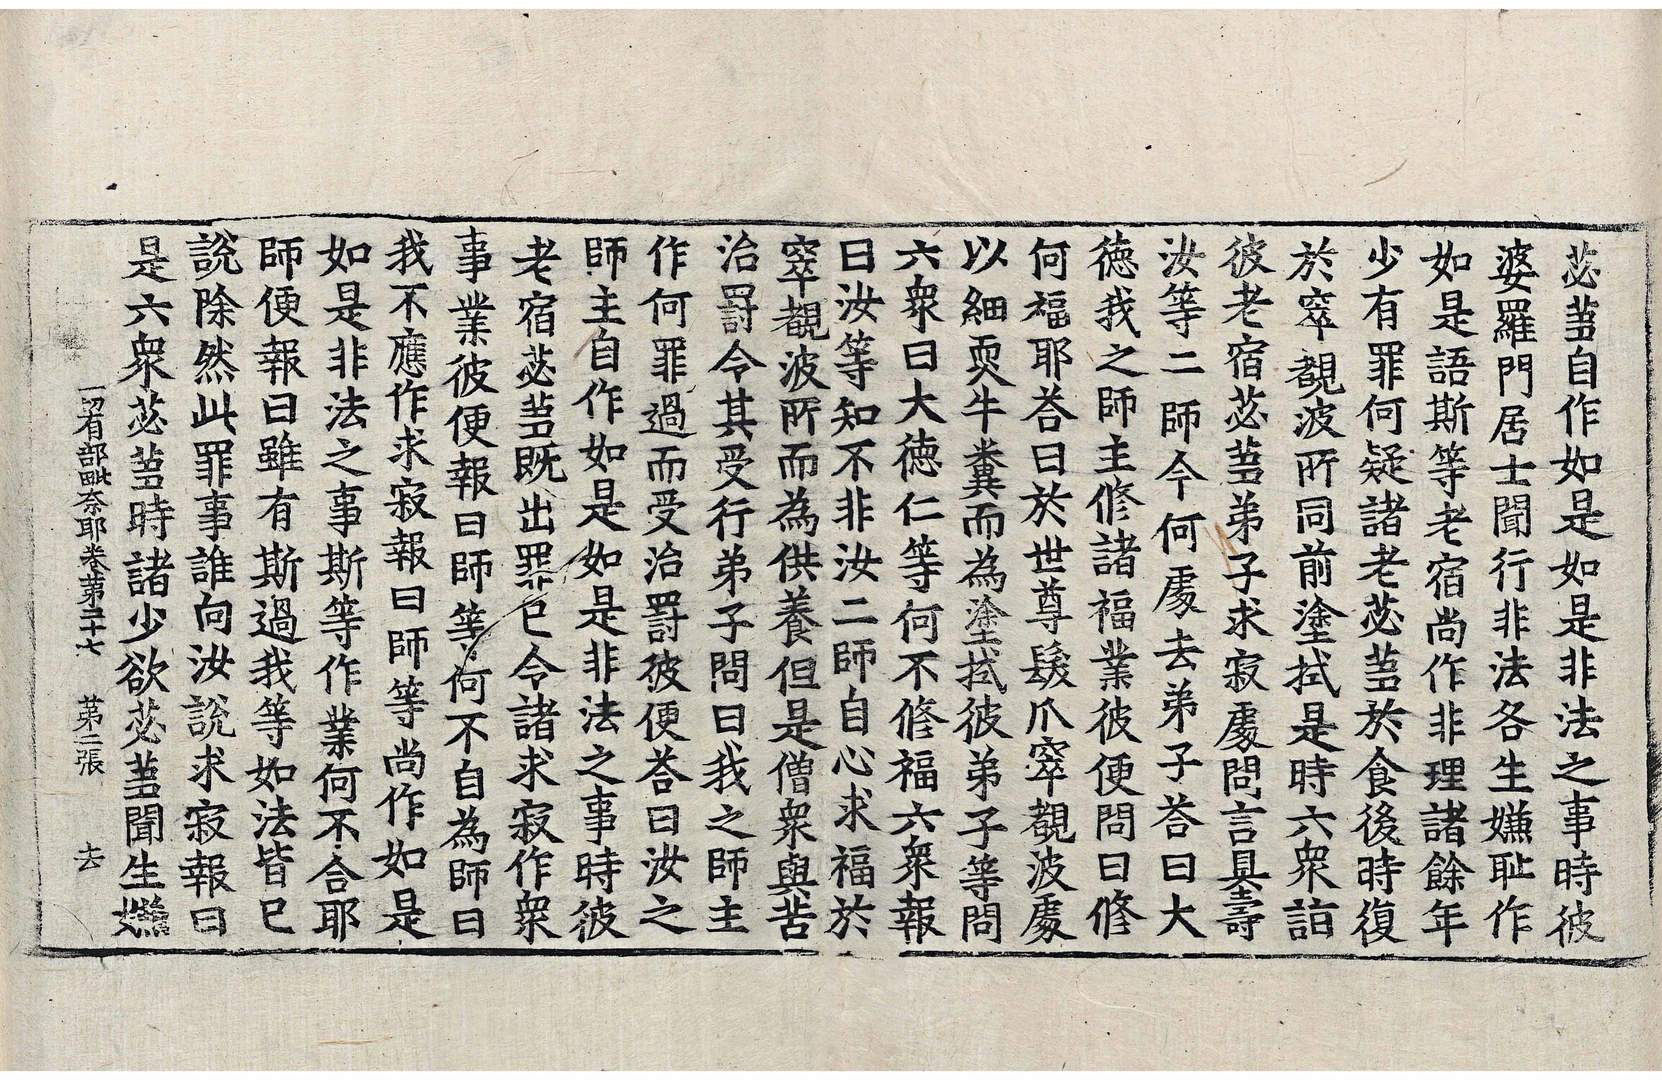 苾蒭自作如是如是非法之事時彼
婆羅門居士聞行非法各生嫌耻作
如是語斯等老宿尚作非理諸餘年
少有罪何疑諸老苾蒭於食後時復
於窣覩波所同前塗拭是時六衆詣
彼老宿苾蒭弟子求寂處問言具壽
汝等二師今何處去弟子荅曰大
德我之師主修諸福業彼便問曰修
何福耶荅曰於世尊髮爪窣覩波處
以細耎牛糞而為塗拭彼弟子等問
六衆曰大德仁等何不修福六衆報
曰汝等知不非汝二師自心求福於
窣覩波所而為供養但是僧衆與苦
治罰令其受行弟子問曰我之師主
作何罪過而受治罰彼便荅曰汝之
師主自作如是如是非法之事時彼
老宿苾蒭既出罪已令諸求寂作衆
事業彼便報曰師等何不自為師曰
我不應作求寂報曰師等尚作如是
如是非法之事斯等作業何不合耶
師便報曰雖有斯過我等如法皆已
說除然此罪事誰向汝說求寂報曰
是六衆苾蒭時諸少欲苾蒭聞生嫌
一切有部毗奈耶卷第三十七 第二張 去